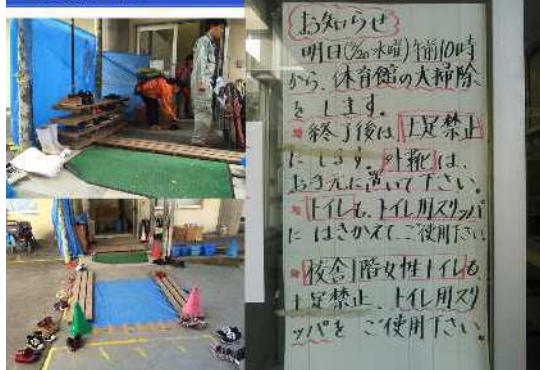 お知らせ
明日(3/20水曜)午前10時
から、体育館の大掃除
をします。
終了後は土足禁止
にします。外靴は、
お手元に置いて下さい。
トイレも、トイレ用スリッパ
にはきかえてご使用下さい。
校舎1階女性トイレも
土足禁止、トイレ用スリ
ッパをご使用下さい。